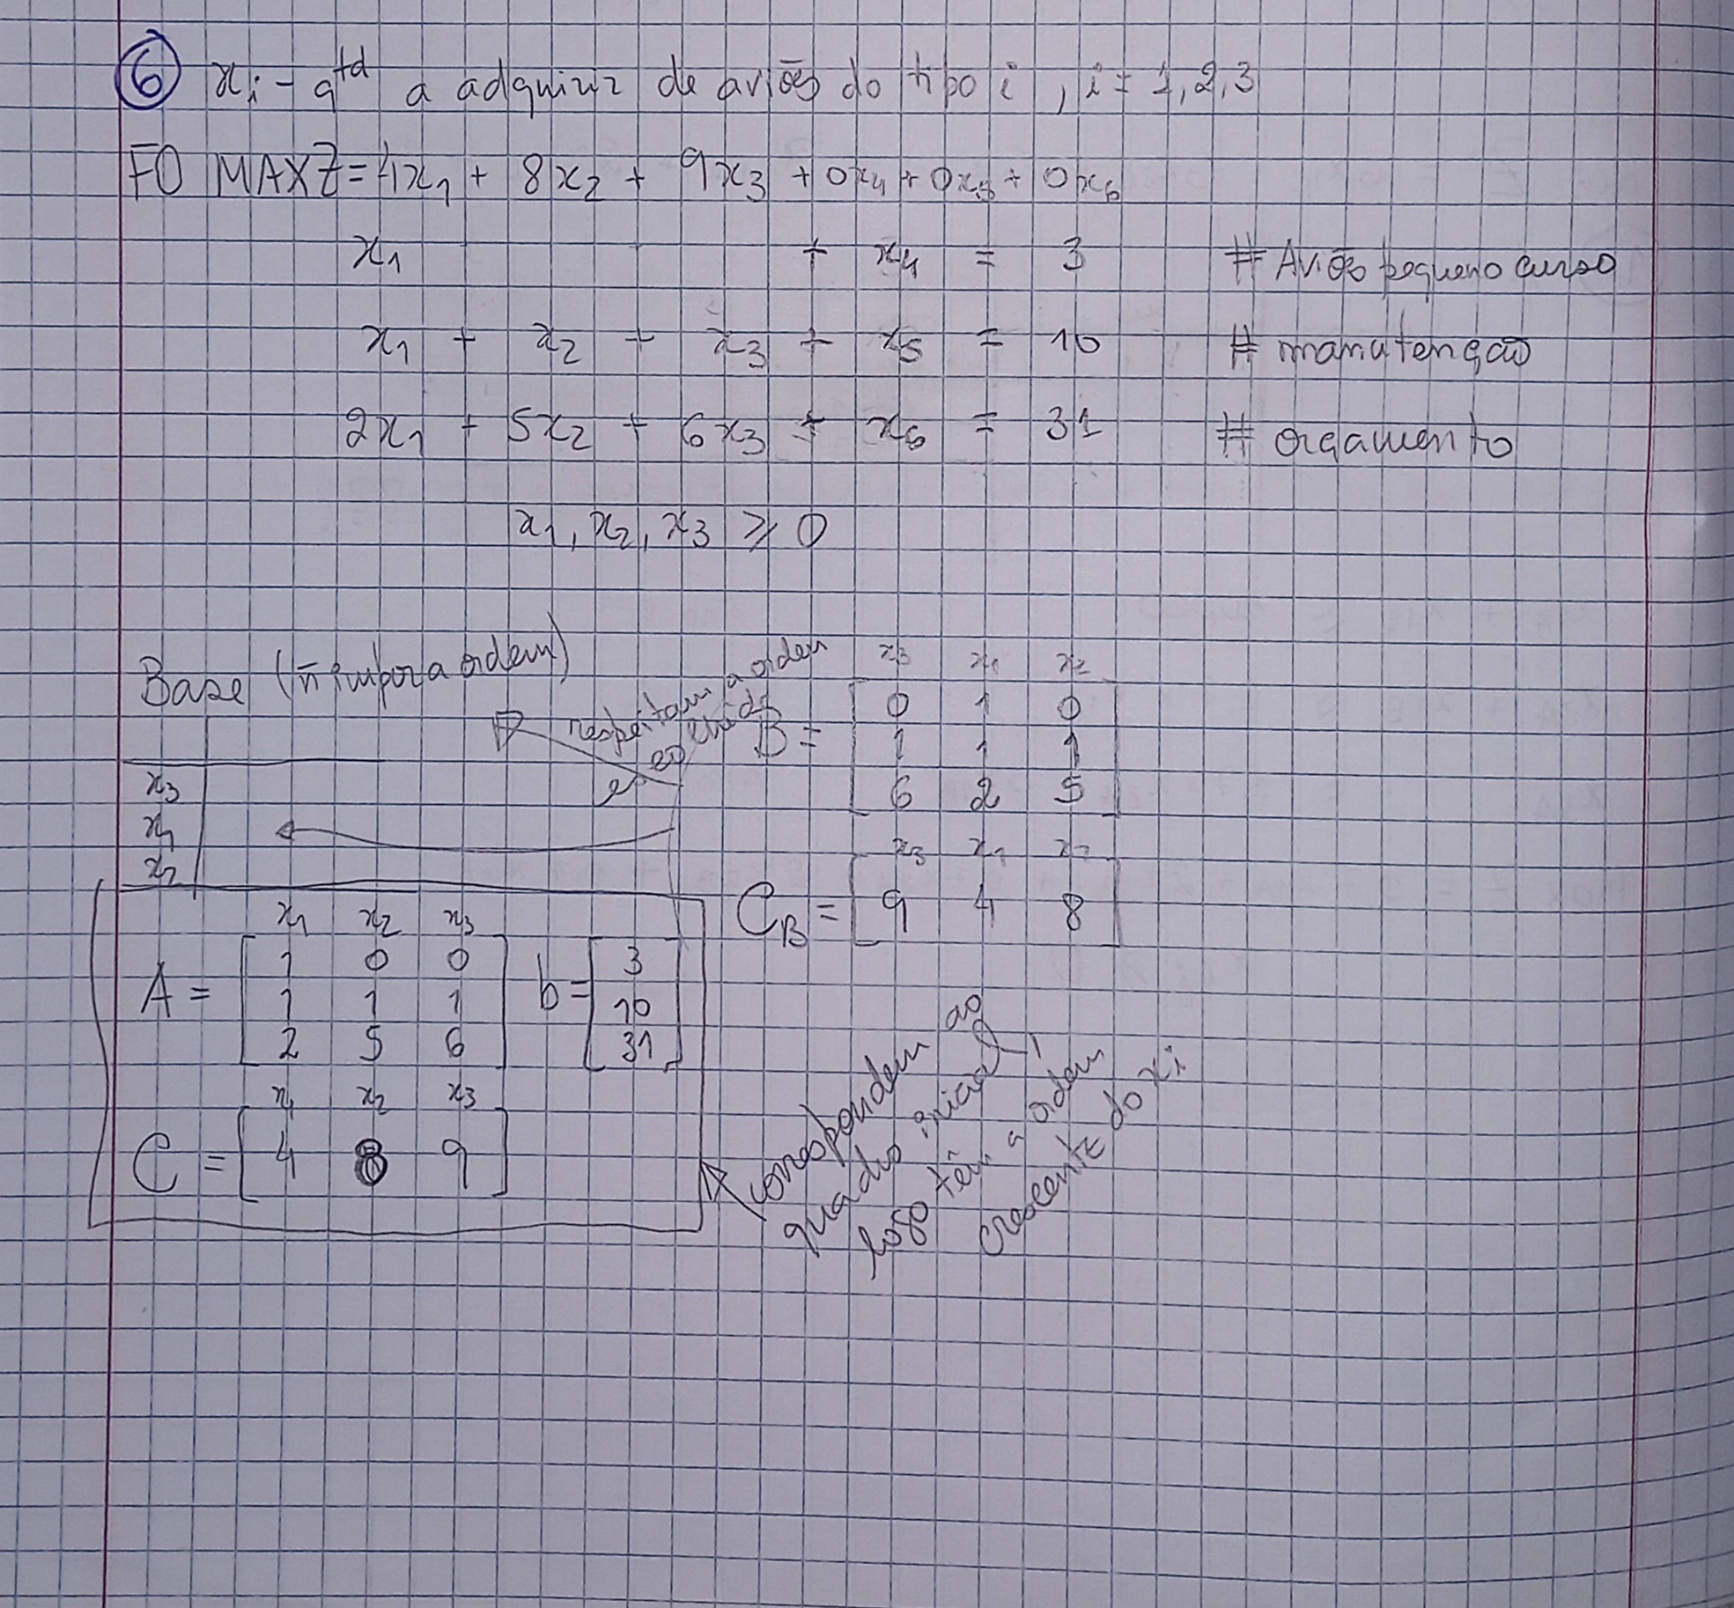 6 xi - qtd a adquirir de aviões do tipo i, i = 1,2,3
FO MAX Z = 4x1 + 8x2 + 9x3 + 0x4 + 0x5 + 0x6
x1 + x4 = 3 # Avião pequeno curso
x1 + x2 + x3 + x5 = 10 # manutenção
2x1 + 5x2 + 6x3 + x6 = 31 # orçamento
x1, x2, x3 ≥ 0
Base (ñ impor a ordem)
x3
x1
x2
respeitam a ordem
escolhida
x3 x1 x2
B = [ 0 1 0
1 1 1
6 2 5 ]
x3 x1 x2
CB = [ 9 4 8 ]
x1 x2 x3
A = [ 1 0 0
1 1 1
2 5 6 ]
b = [ 3
10
31 ]
x1 x2 x3
C = [ 4 8 9 ]
correspondem ao
quadro inicial
logo têm a ordem
crescente do xi